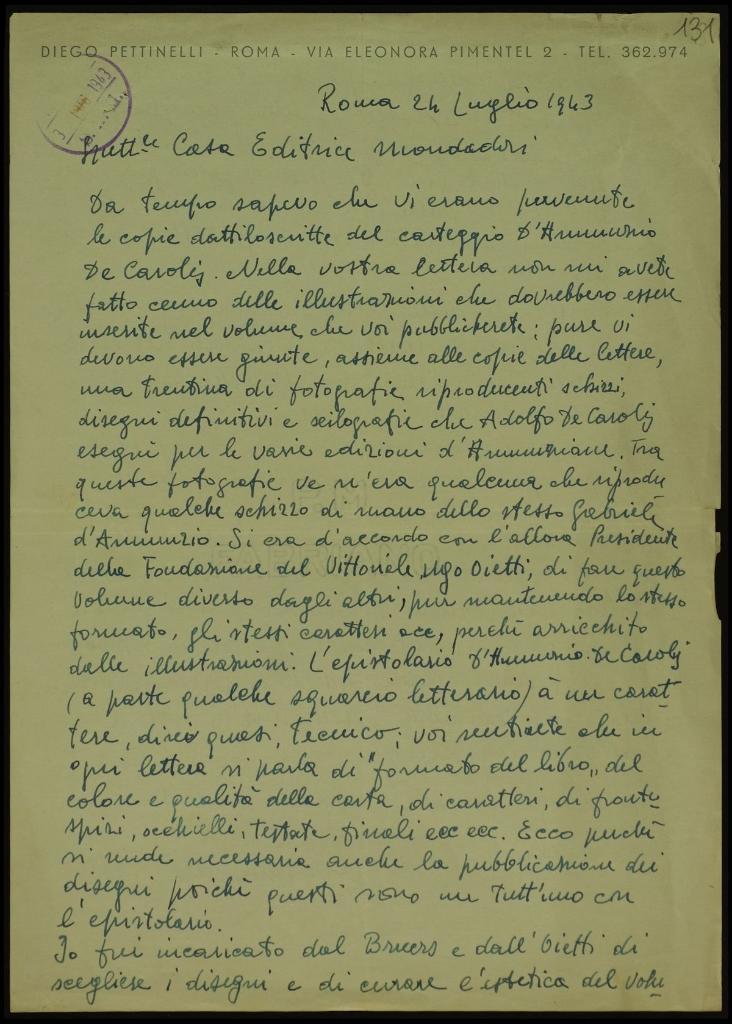 131
DIEGO PETTINELLI - ROMA - VIA ELEONORA PIMENTEL 2 - TEL. 362.974
1963
Roma 24 Luglio 1943
Spett.le Casa Editrice Mondadori
Da tempo sapevo che vi erano pervenute
le copie dattiloscritte del carteggio D'Annunzio
De Carolis. Nella vostra lettera non mi avete
fatto cenno delle illustrazioni che dovrebbero essere
inserite nel volume che voi pubblicherete; pure vi
devono essere giunte, assieme alle copie delle lettere,
una trentina di fotografie riproducenti schizzi,
disegni definitivi e silografie che Adolfo De Carolis
eseguì per le varie edizioni d'Annunziane. Tra
queste fotografie ve n'era qualcuna che riprodu
ceva qualche schizzo di mano dello stesso Gabriele
d'Annunzio. Si era d'accordo con l'allora Presidente
della Fondazione del Vittoriale, Ugo Oietti, di fare questo
volume diverso dagli altri, pur mantenendo lo stesso
formato, gli stessi caratteri ecc, perchè arricchito
dalle illustrazioni. L'epistolario D'Annunzio-De Carolis
(a parte qualche squarcio letterario) à un carat-
tere, direi quasi, tecnico; voi sentirete che in
ogni lettera si parla di "formato del libro,, del
colore e qualità della carta, di caratteri, di fronte
spizi, occhielli, testate, finali ecc ecc. Ecco perchè
si rende necessaria anche la pubblicazione dei
disegni poichè questi sono un tutt'uno con
l'epistolario.
Io fui incaricato dal Bruers e dall'Oietti di
scegliere i disegni e di curare l'estetica del volu